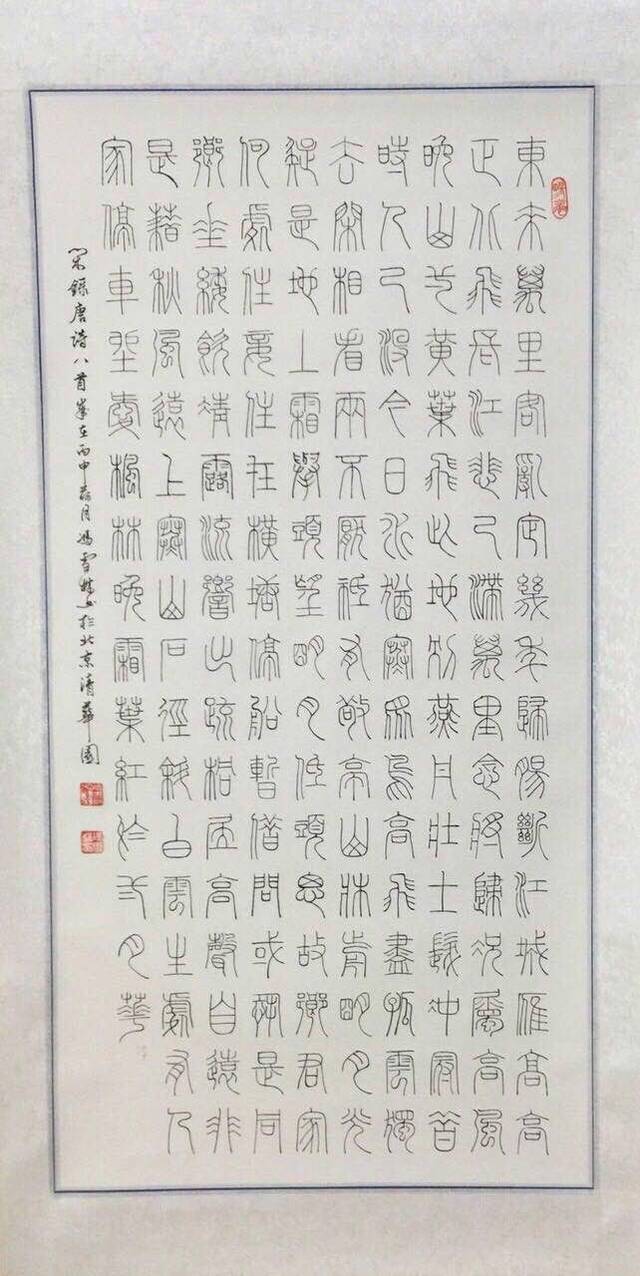 東来萬里客亂定幾年歸腸斷江城雁高高
正北飛長江悲已滯萬里念將歸況屬高風
晚山山黃葉飛此地別燕丹壯士髮衝冠昔
時人已沒今日水猶寒眾鳥高飛盡孤雲獨
去閑相看兩不厭祗有敬亭山牀前明月光
疑是地上霜舉頭望明月低頭思故鄉君家
何處住妾住在橫塘停船暫借問或恐是同
鄉垂緌飲清露流響出疏桐居高聲自遠非
是藉秋風遠上寒山石徑斜白雲生處有人
家停車坐愛楓林晚霜葉紅於二月華
錄唐詩八首歲在丙申月馮雪書於北京清華園